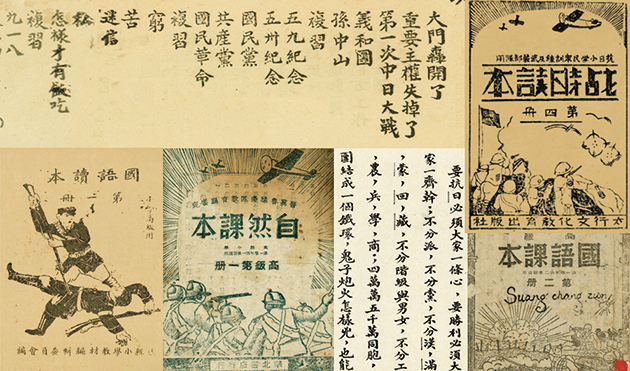 大門轟開了
重要主權失掉了
第一次中日大戰
義和國
孫中山
複習
五九紀念
五卅紀念
國民黨
共產黨
國民革命
複習
窮
苦
迷信
怎樣才有飯吃
複習
九一八
戰時讀本
第四冊
太行文化教育出版社
國語讀本
第二冊
小學教材編輯委員會編
晉冀魯豫邊區教育廳審定
自然課本
高級第一册
要抗日必須大家一條心，要勝利必須大
家一齊幹；不分派，不分黨，不分漢，滿
，蒙，回，藏，不分階級與男女，不分工
，農，兵，學，商；四萬萬五千萬同胞，
團結成一個鐵球，鬼子炮火怎樣兇，也能
國語課本
第二冊
Suang chang zun